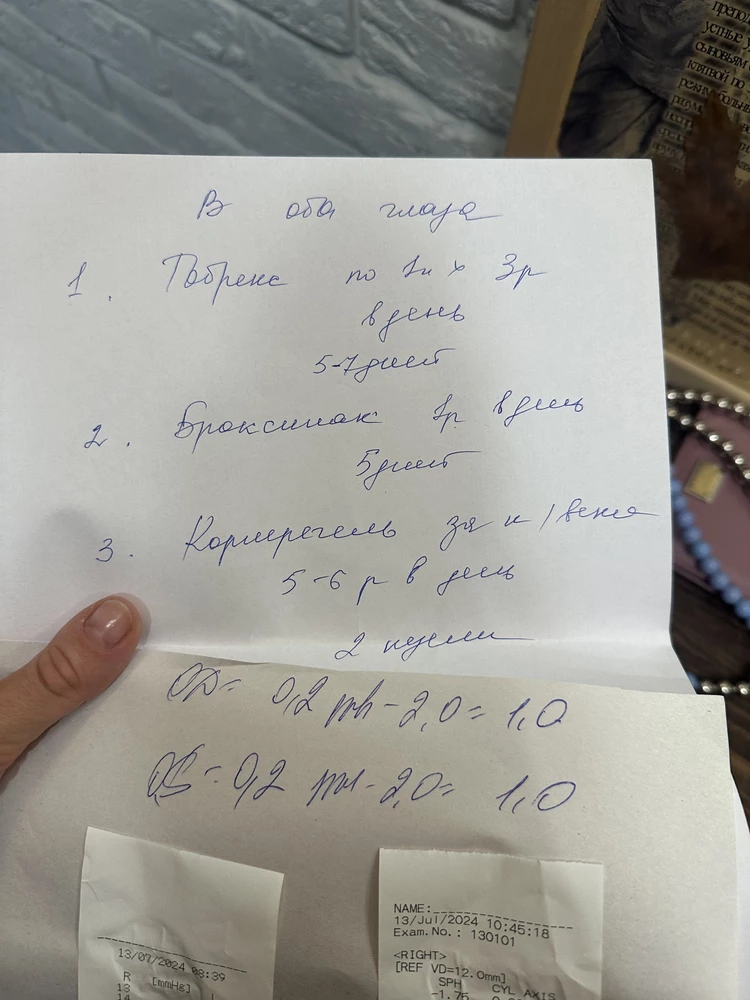 В оба глаза
1. Тобрекс по 1к х 3р
в день
5-7 дней
2. Броксинак 1р в день
5 дней
3. Корнерегель за н/веко
5-6 р в день
2 недели
OD = 0,2 sph - 2,0 = 1,0
OS = 0,2 sph - 2,0 = 1,0
13/07/2024 08:39
R [mmHg] L
13
14
NAME:
13/Jul/2024 10:45:18
Exam.No.: 130101
<RIGHT>
[REF VD=12.0mm]
SPH CYL AXIS
-1.75
УСТНЫЕ
СЫНОВЬЯМ
КЛЯТВОЙ ПО